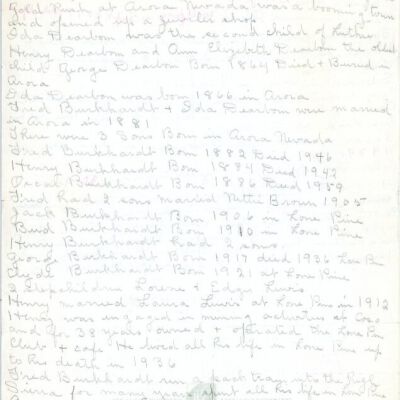 Gold Rush at Arora Nevada was a booming town
and opened up a jewelry shop.
Ida Dearborn was the second child of Luther
Henry Dearborn and Ann Elizabeth Dearborn the oldest
child George Dearborn Born 1864 Died & Buried in
Arora
Ida Dearborn was born 1866 in Arora
Fred Burkhardt & Ida Dearborn were married
in Arora in 1881
There were 3 Sons Born in Arora Nevada
Fred Burkhardt Born 1882 Died 1946
Henry Burkhardt Born 1884 Died 1942
Oscar Burkhardt Born 1886 Died 1959
Fred had 2 sons married Nettie Brown 1905
Jack Burkhardt Born 1906 in Lone Pine
Bud Burkhardt Born 1910 in Lone Pine
Henry Burkhardt had 2 sons.
George Burkhardt Born 1917 died 1936 Lone Pine
Clyde Burkhardt Born 1921 at Lone Pine
2 Stepchildren Lorene & Edgar Lewis
Henry married Laura Lewis at Lone Pine in 1912
Henry was engaged in mining activities at Coso
and for 38 years owned & operated the Lone Pine
Club & cafe. He lived all his life in Lone Pine up
to his death in 1936
Fred Burkhardt run pack train into the High
Sierra for many years spent all his life in Lone Pine